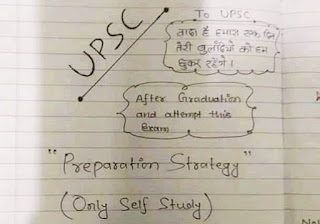 UPSC
To UPSC
वादा है हमारा एक दिन
तेरी बुलंदियों को हम
छुकर रहेंगे ।
After Graduation
and attempt this
Exam
"Preparation Strategy"
(Only Self Study)